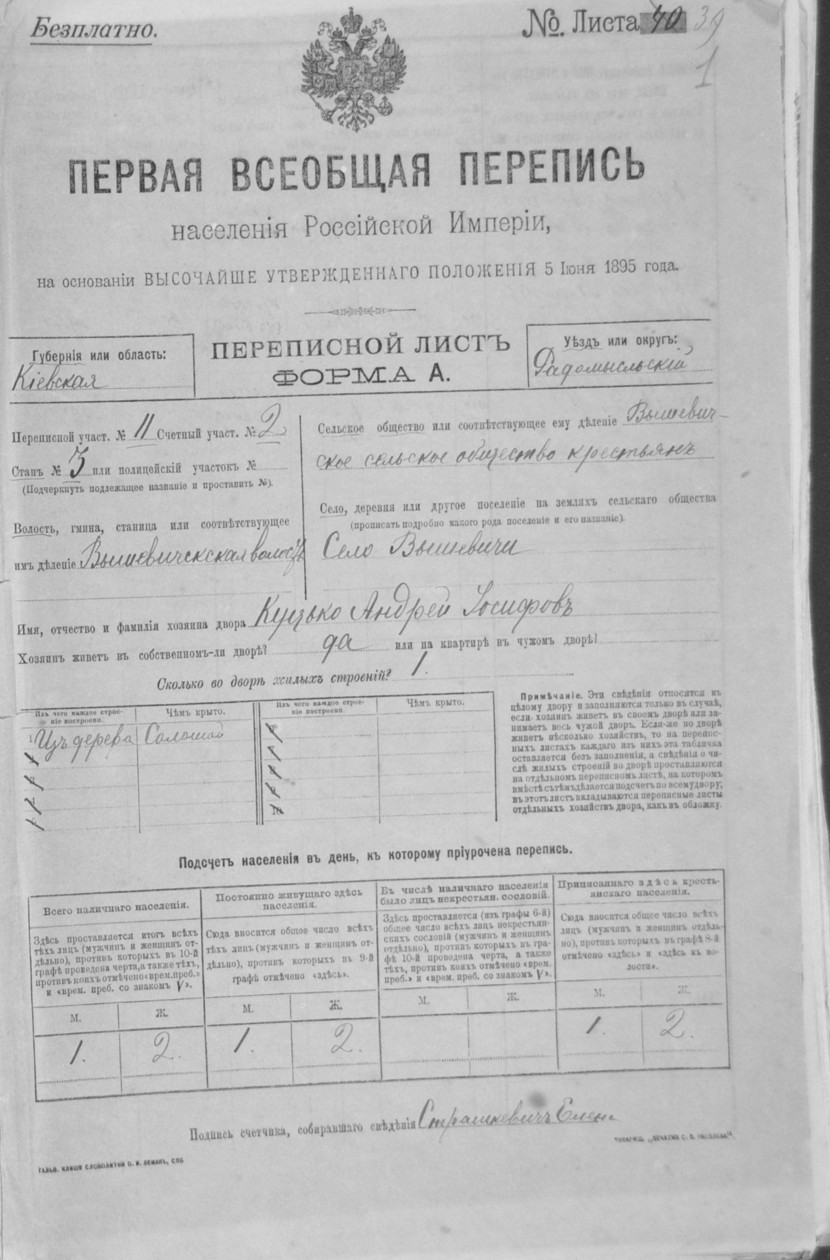 Безплатно.
№. Листа 40 39
1
ПЕРВАЯ ВСЕОБЩАЯ ПЕРЕПИСЬ
населенія Россійской Имперіи,
на основаніи ВЫСОЧАЙШЕ УТВЕРЖДЕННАГО ПОЛОЖЕНІЯ 5 Іюня 1895 года.
Губернія или область:
Кіевская
ПЕРЕПИСНОЙ ЛИСТЪ
ФОРМА А.
Уѣздъ или округъ:
Радомысльскій
Переписной участ. № 11 Счетный участ. № 2
Станъ № 3 или полицейскій участокъ №
(Подчеркнуть подлежащее названіе и проставить №).
Волость, гмина, станица или соотвѣтствующее
имъ дѣленіе Вышевичскская волость
Сельское общество или соотвѣтствующее ему дѣленіе Вышевич-
ское сельское общество крестьянъ
Село, деревня или другое поселеніе на земляхъ сельскаго общества
(прописать подробно какого рода поселеніе и его названіе).
Село Вышевичи
Имя, отчество и фамилія хозяина двора Куцько Андрей Іосифовъ
Хозяинъ живетъ въ собственномъ-ли дворѣ? да или на квартирѣ въ чужомъ дворѣ?
Сколько во дворѣ жилыхъ строеній? 1.
Изъ чего каждое строе-
ніе построено.
Чѣмъ крыто.
Изъ чего каждое строе-
ніе построено.
Чѣмъ крыто.
Изъ дерева Соломой
Примѣчаніе. Эти свѣдѣнія относятся къ
цѣлому двору и заполняются только въ случаѣ,
если хозяинъ живетъ въ своемъ дворѣ или за-
нимаетъ весь чужой дворъ. Если-же во дворѣ
живетъ нѣсколько хозяйствъ, то на перепис-
ныхъ листахъ каждаго изъ нихъ эта табличка
оставляется безъ заполненія, а свѣдѣнія о чи-
слѣ жилыхъ строеній во дворѣ проставляются
на отдѣльномъ переписномъ листѣ, на которомъ
вмѣстѣ съ тѣмъ дѣлается подсчетъ по всему двору;
въ этотъ листъ вкладываются переписные листы
отдѣльныхъ хозяйствъ двора, какъ въ обложку.
Подсчетъ населенія въ день, къ которому пріурочена перепись.
Всего наличнаго населенія.
Здѣсь проставляется итогъ всѣхъ
тѣхъ лицъ (мужчинъ и женщинъ от-
дѣльно), противъ которыхъ въ 10-й
графѣ проведена черта, а также тѣхъ,
противъ коихъ отмѣчено «врем. преб.»
и «врем. преб. со знакомъ V».
М. Ж.
1. 2.
Постоянно живущаго здѣсь
населенія.
Сюда вносится общее число всѣхъ
тѣхъ лицъ (мужчинъ и женщинъ от-
дѣльно), противъ которыхъ въ 9-й
графѣ отмѣчено «здѣсь».
М. Ж.
1. 2.
Въ числѣ наличнаго населенія
было лицъ некрестьян. сословій.
Здѣсь проставляется (изъ графы 6-й)
общее число всѣхъ лицъ некрестьян-
скихъ сословій (мужчинъ и женщинъ
отдѣльно), противъ которыхъ въ гра-
фѣ 10-й проведена черта, а также
тѣхъ, противъ коихъ отмѣчено «врем.
преб.» и «врем. преб. со знакомъ V».
М. Ж.
Приписаннаго здѣсь кресть-
янскаго населенія.
Сюда вносится общее число всѣхъ
лицъ (мужчинъ и женщинъ отдѣль-
но), противъ которыхъ въ графѣ 8-й
отмѣчено «здѣсь» и «здѣсь въ во-
лости».
М. Ж.
1. 2.
Подпись счетчика, собиравшаго свѣдѣнія Страшкевичъ